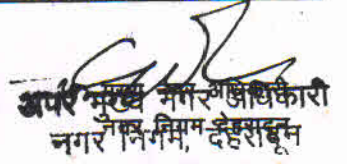 अपर मुख्य नगर अधिकारी
नगर निगम, देहरादून